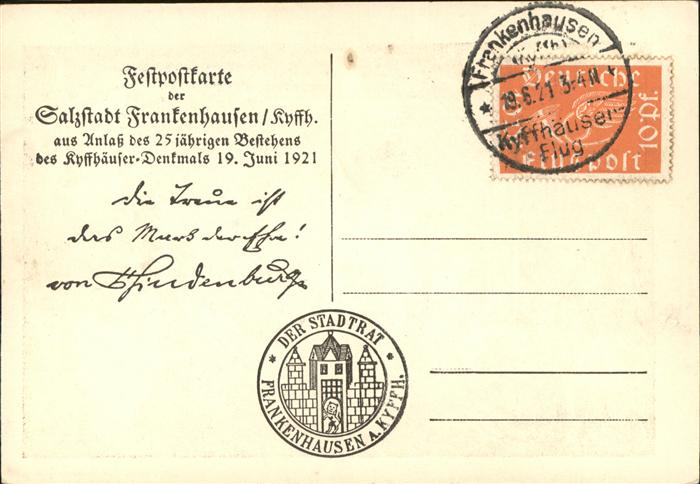 Festpostkarte
der
Salzstadt Frankenhausen/Kyffh.
aus Anlaß des 25 jährigen Bestehens
des Kyffhäuser-Denkmals 19. Juni 1921
die Treue ist
das Mark der Ehre!
von Hindenburg
Frankenhausen
(Kyffh)
19.6.21 3-4 N
Kyffhäuser-
Flug
Deutsche
Flugpost
10 Pf.
DER STADTRAT
FRANKENHAUSEN A. KYFFH.